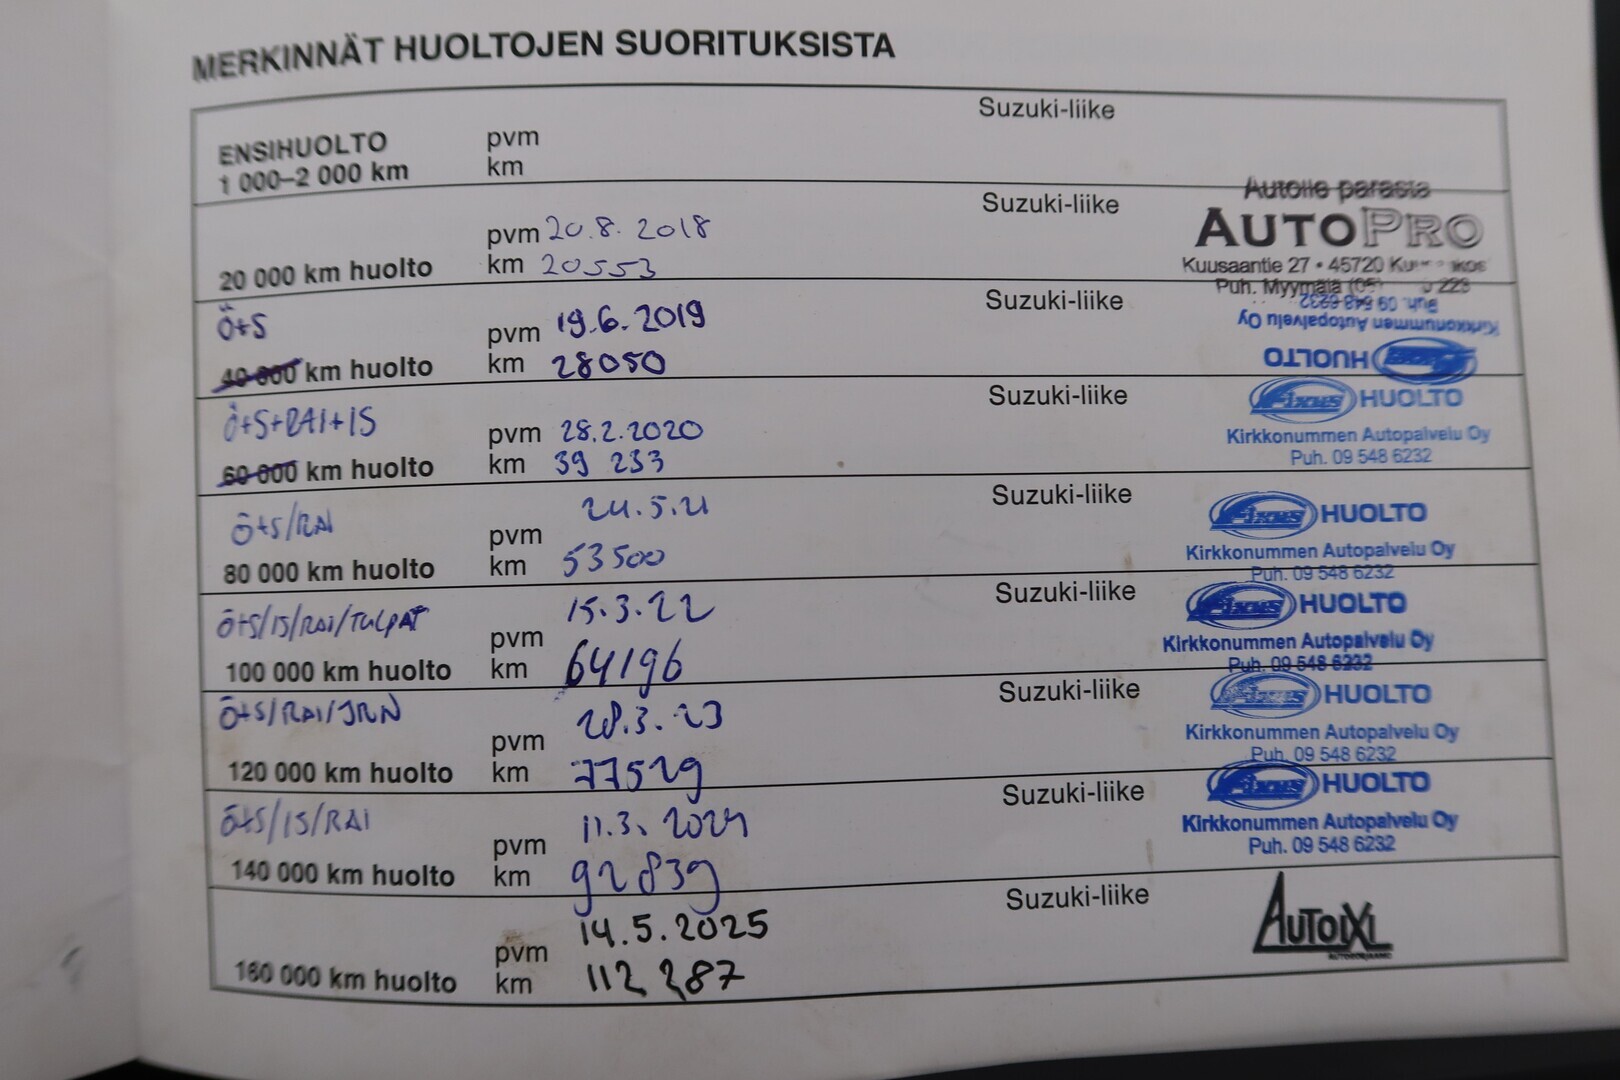 MERKINNÄT HUOLTOJEN SUORITUKSISTA
Suzuki-liike
ENSIHUOLTO pvm
1 000–2 000 km km
Suzuki-liike
Autolle parasta
AUTOPRO
Kuusaantie 27 • 45720
Puh. Myymälä 223
pvm 20.8. 2018
20 000 km huolto km 20553
Suzuki-liike
Puh. 09 548 6232
Kirkkonummen Autopalvelu Oy
HUOLTO
Ö+S
pvm 19.6.2019
40 000 km huolto km 28050
Suzuki-liike
HUOLTO
Kirkkonummen Autopalvelu Oy
Puh. 09 548 6232
Ö+S+RAI+IS
pvm 28.2.2020
60 000 km huolto km 39 233
Suzuki-liike
HUOLTO
Kirkkonummen Autopalvelu Oy
Puh. 09 548 6232
Ö+S/RAI
pvm 24.5.21
80 000 km huolto km 53500
Suzuki-liike
HUOLTO
Kirkkonummen Autopalvelu Oy
Puh. 09 548 6232
Ö+S/IS/RAI/TULPAT
pvm 15.3.22
100 000 km huolto km 64196
Suzuki-liike
HUOLTO
Kirkkonummen Autopalvelu Oy
Puh. 09 548 6232
Ö+S/RAI/JRN
pvm 28.3.23
120 000 km huolto km 77529
Suzuki-liike
HUOLTO
Kirkkonummen Autopalvelu Oy
Puh. 09 548 6232
Ö+S/IS/RAI
pvm 11.3.2024
140 000 km huolto km 92839
Suzuki-liike
AUTOIXI
pvm 14.5.2025
160 000 km huolto km 112 287